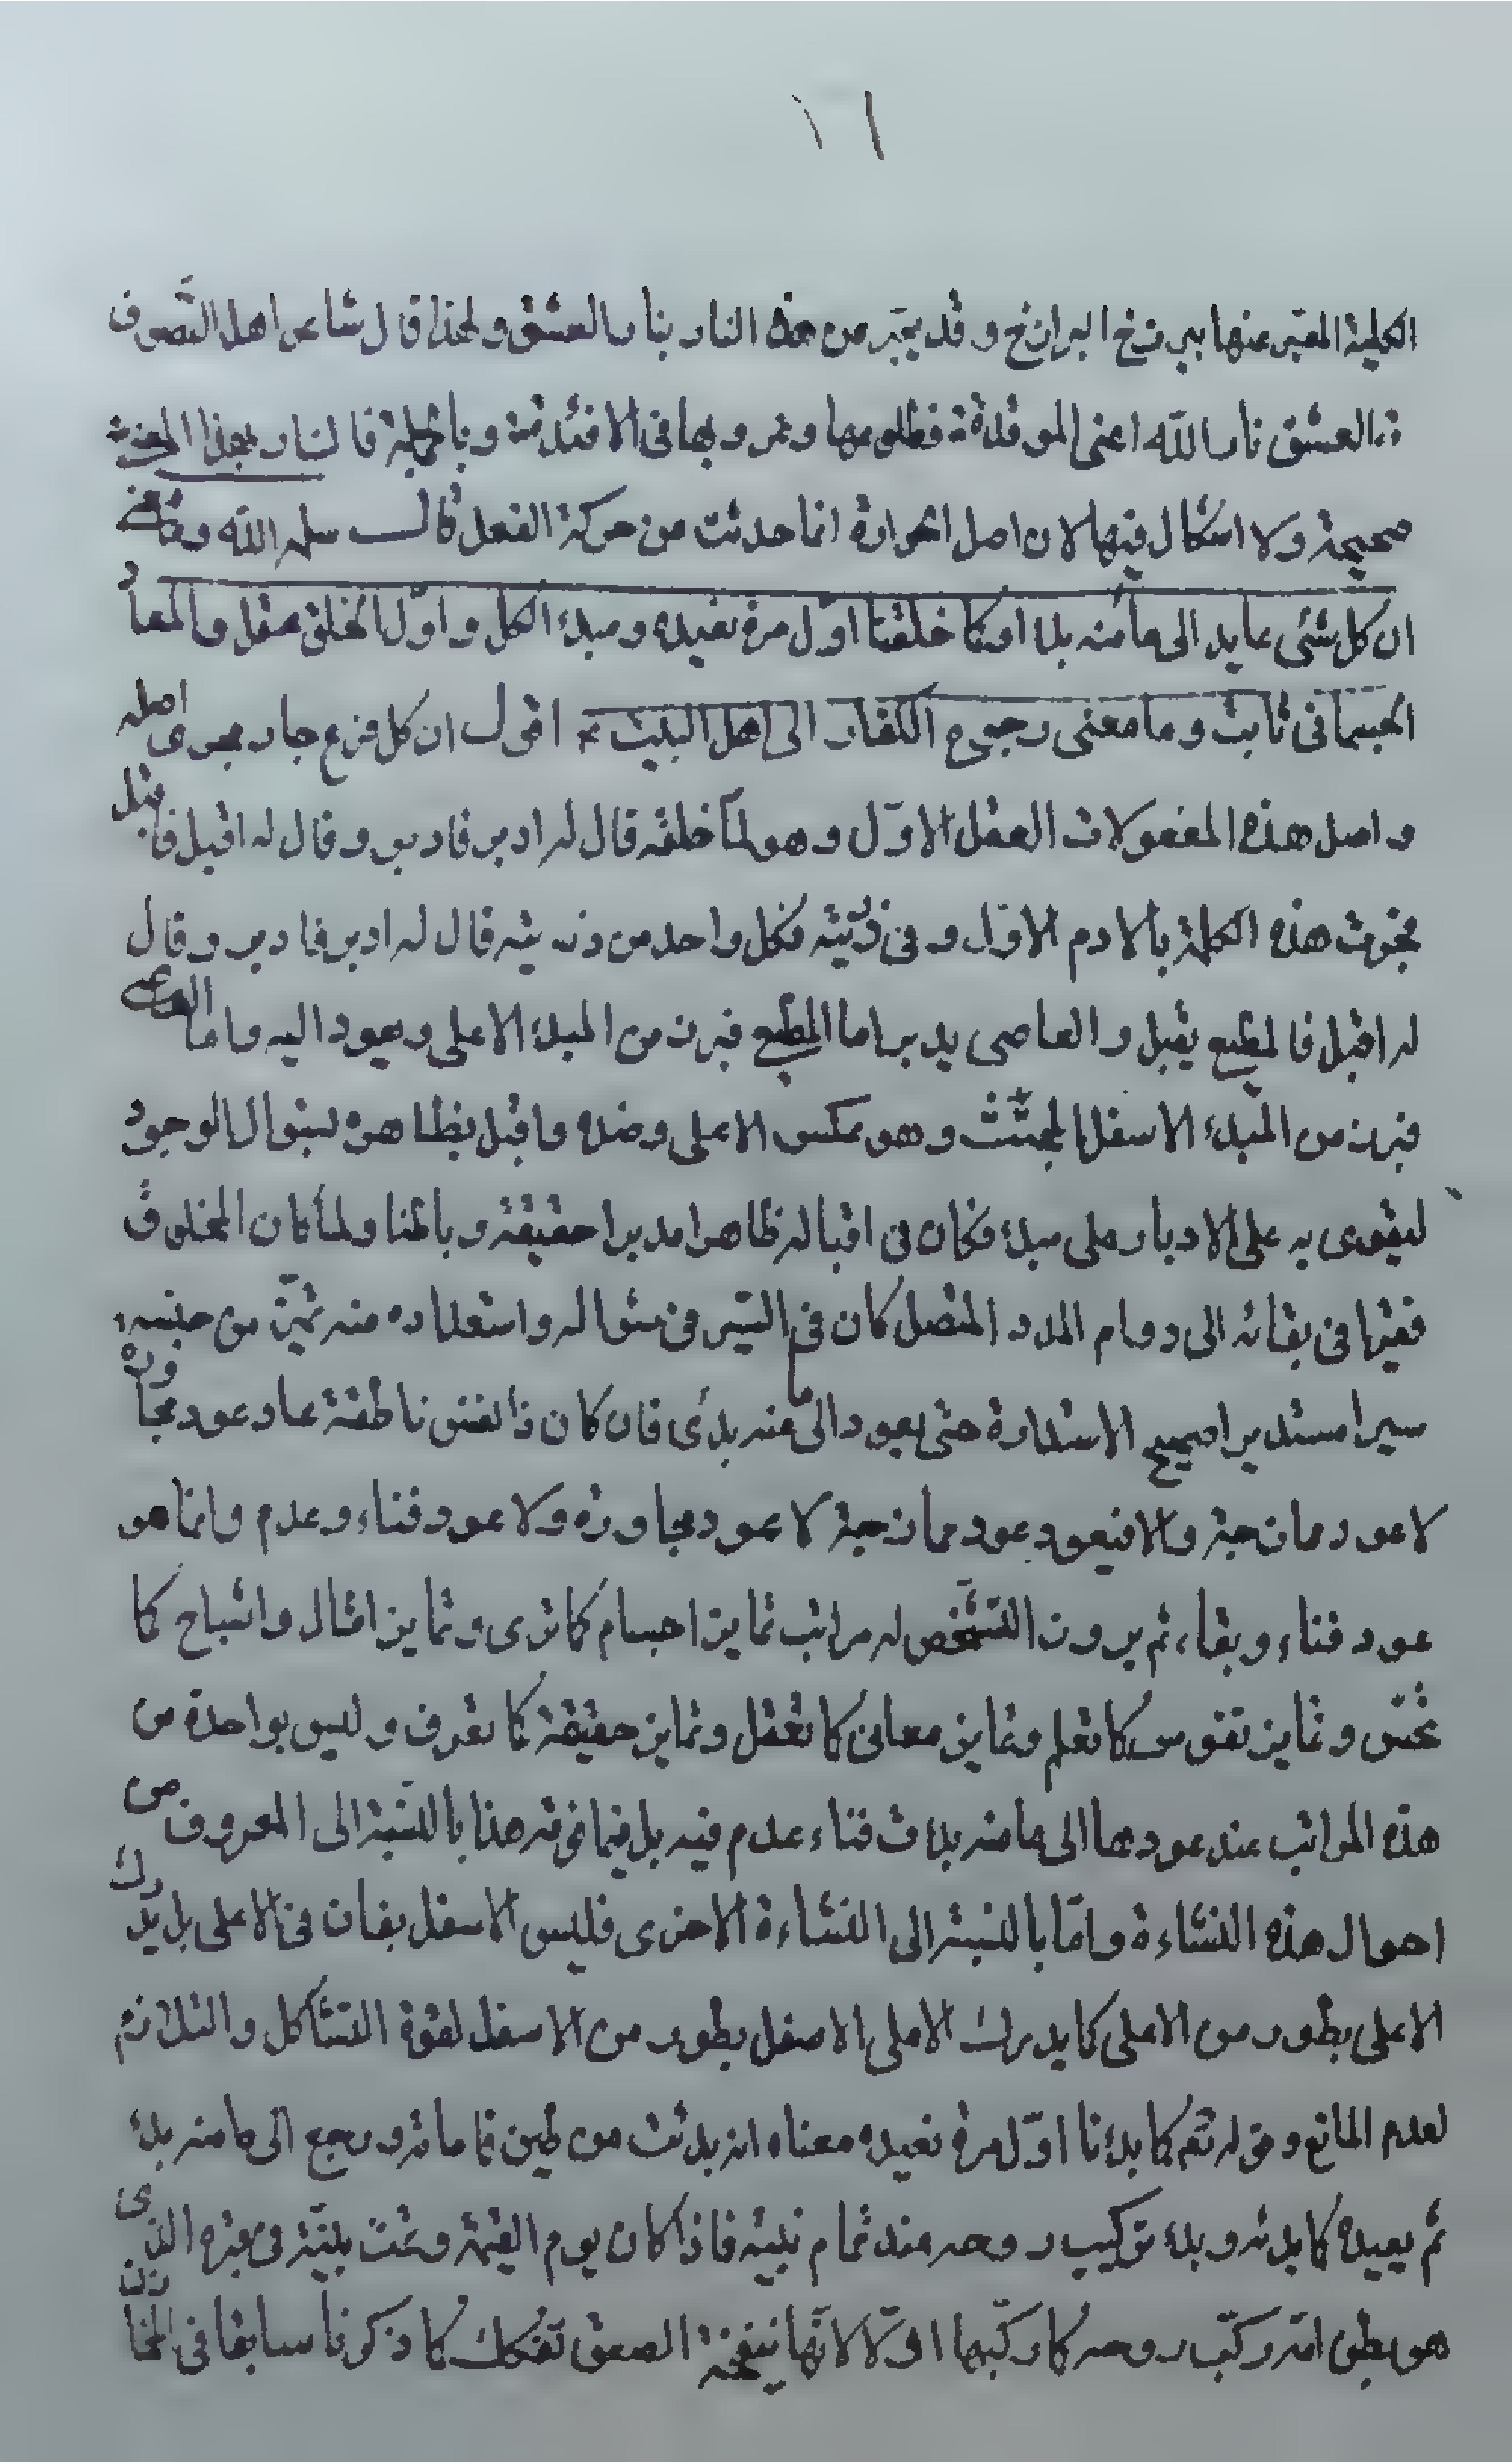 ١٦
الكلية المعبّر عنها ببرزخ البرازخ وقد يعبّر من هذه النار بنار العشق ولهذا قال شاعر اهل التصوف
العشق نار الله اعنى الموقدة فطلوعها وغروبها فى الافئدة وبالجملة فالنار بهذا المعنى
صحيحة ولا اشكال فيها لان اصل الحرارة انما حدثت من حركة الفعل قال سلمه الله
ان كل شئى عايد الى ما منه بدا او كما خلقنا اوّل مرة نعيده ومبدء الكل واوّل الخلق عقل والمعاد
الجسمانى ثابت وما معنى رجوع الكفار الى اهل البيت ع اقول ان كل فرع جار مجرى اصله
واصل هذه المفعولات العقل الاوّل وهو لمّا خلقه قال له ادبر فادبر وقال له اقبل فاقبل
فجرت هذه الكلمة بالادم الاوّل وفى ذرّيته فكل واحد من ذريته قال له ادبر فادبر وقال
له اقبل فالمطيع يقبل والعاصى يدبر اما المطيع فبرز من المبدء الاعلى ويعود اليه واما العاصى
فبرز من المبدء الاسفل المجتثّ وهو عكس الاعلى وضده واقبل بظاهره لسؤال الوجود
ليقوى به على الادبار على مبدء فكان فى اقباله ظاهرا مدبرا حقيقة وباطنا ولما كان المخلوق
فقيرا فى بقائه الى دوام المدد المتصل كان فى السّير فى سؤاله واستعداده منه
سيرا مستديرا صحيح الاستدارة حتى يعود الى ما منه بدئ فان كان ذا نفس ناطقة عاد عود مجاورة
لا عود ممازجة والا فيعود عود ممازجة لا عود مجاورة ولا عود فناء وعدم وانما هو
عود فناء وبقاء ثم بروز التشخّص له مراتب تمايز اجسام كما ترى وتمايز امثال واشباح كما
تحسّ وتمايز نفوس كما تعلم وتمايز معانى كما تعقل وتمايز حقيقة كما تعرف وليس بواحدة من
هذه المراتب عند عودها الى ما منه بدئت فناء عدم فيه بل فيما فوقه هذا بالنّسبة الى المعروف من
احوال هذه النشاءة وامّا بالنسبة الى النشاءة الاخرى فليس الاسفل بفان فى الاعلى بل يدرك
الاعلى بطور من الاعلى كما يدرك الاعلى الاسفل بطور من الاسفل لقوة التشاكل والتلازم
لعدم المانع وقوله تعم كما بدءنا اوّل مرة نعيده معناه انه بدئت من طين فاماته ورجع الى ما منه بدء
ثم يعيده كما بدئه وبدء تركيب روحه عند تمام بنيته فاذا كان يوم القيمة وتمّت بنيّته فى قبره الذى
هو بطن امّه ركّب روحه كما ركّبها اوّلا لانّها بنفخة الصعق تفكك كما ذكرنا سابقا فى المخازن